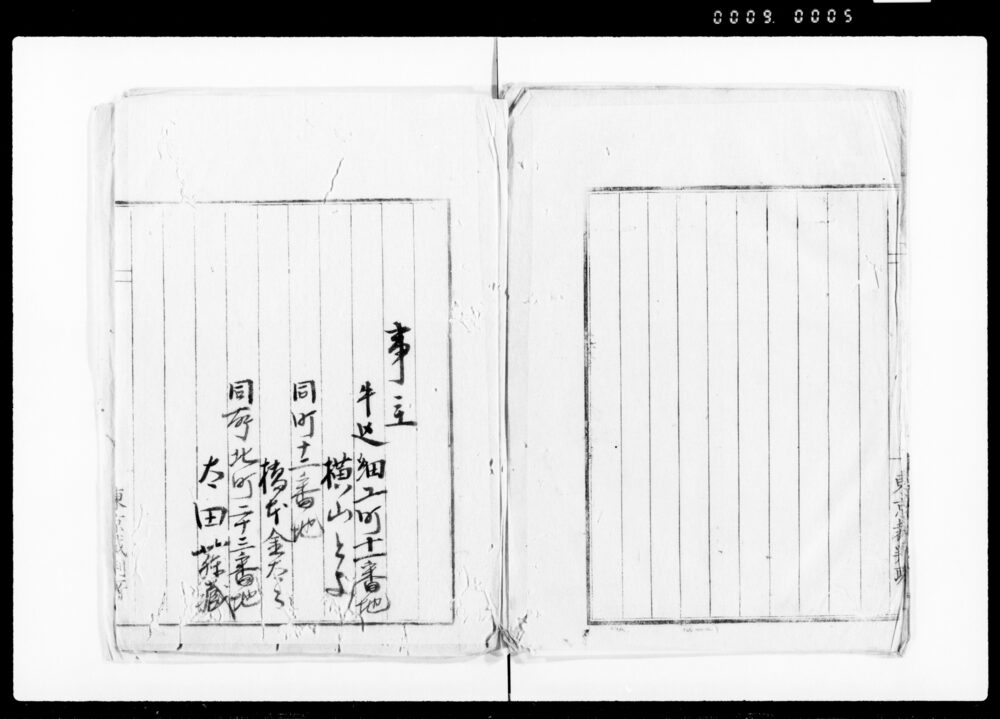 0009. 0005
東京裁判所
事主
牛込細工町十一番地
横山とよ
同町十二番地
橋本金太郎
同所北町二十三番地
太田藤蔵
東京裁判所